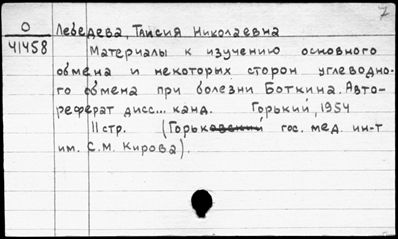 7
О
41458
Лебедева, Таисия Николаевна
Материалы к изучению основного
обмена и некоторых сторон углеводно-
го обмена при болезни Боткина. Авто-
реферат дисс... канд. Горький, 1954
11 стр. (Горьковский гос. мед. ин-т
им. С.М. Кирова).